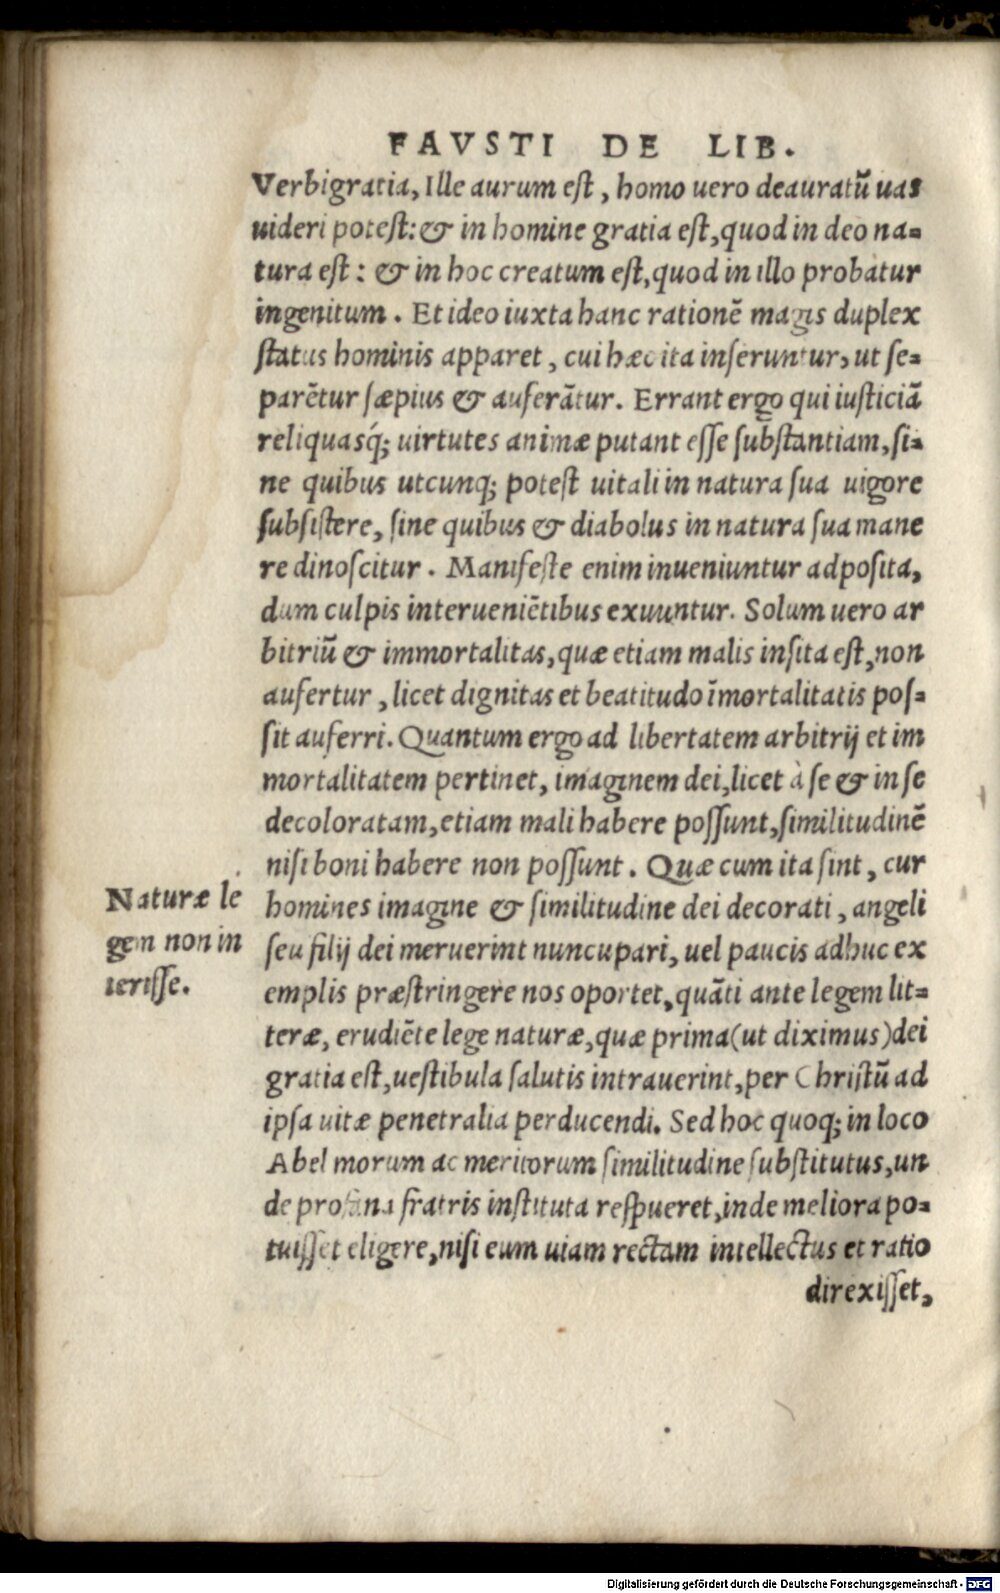 FAVSTI DE LIB.
Verbigratia, Ille aurum est, homo uero deauratũ uas
uideri potest: & in homine gratia est, quod in deo na-
tura est: & in hoc creatum est, quod in illo probatur
ingenitum. Et ideo iuxta hanc rationẽ magis duplex
status hominis apparet, cui hæc ita inseruntur, ut se-
parẽtur sæpius & auferãtur. Errant ergo qui iusticiã
reliquasq́; uirtutes animæ putant esse substantiam, si-
ne quibus utcunq; potest uitali in natura sua uigore
subsistere, sine quibus & diabolus in natura sua mane
re dinoscitur. Manifeste enim inueniuntur adposita,
dum culpis interueniẽtibus exuuntur. Solum uero ar
bitriũ & immortalitas, quæ etiam malis insita est, non
aufertur, licet dignitas et beatitudo ĩmortalitatis pos-
sit auferri. Quantum ergo ad libertatem arbitrij et im
mortalitatem pertinet, imaginem dei, licet à se & in se
decoloratam, etiam mali habere possunt, similitudinẽ
nisi boni habere non possunt. Quæ cum ita sint, cur
homines imagine & similitudine dei decorati, angeli
seu filij dei meruerint nuncupari, uel paucis adhuc ex
emplis præstringere nos oportet, quãti ante legem lit-
teræ, erudiẽte lege naturæ, quæ prima (ut diximus) dei
gratia est, uestibula salutis intrauerint, per Christũ ad
ipsa uitæ penetralia perducendi. Sed hoc quoq; in loco
Abel morum ac meritorum similitudine substitutus, un
de profana fratris instituta respueret, inde meliora po-
tuisset eligere, nisi eum uiam rectam intellectus et ratio
direxisset,
Naturæ le
gem non in
terisse.
Digitalisierung gefördert durch die Deutsche Forschungsgemeinschaft - DFG